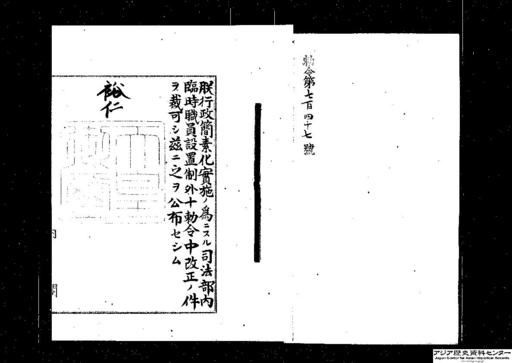 勅令第七百四十七號
朕行政簡素化實施ノ爲ニスル司法部內
臨時職員設置制外十勅令中改正ノ件
ヲ裁可シ茲ニ之ヲ公布セシム
裕仁
天皇御璽
內
閣
アジア歴史資料センター
Japan Center for Asian Historical Records